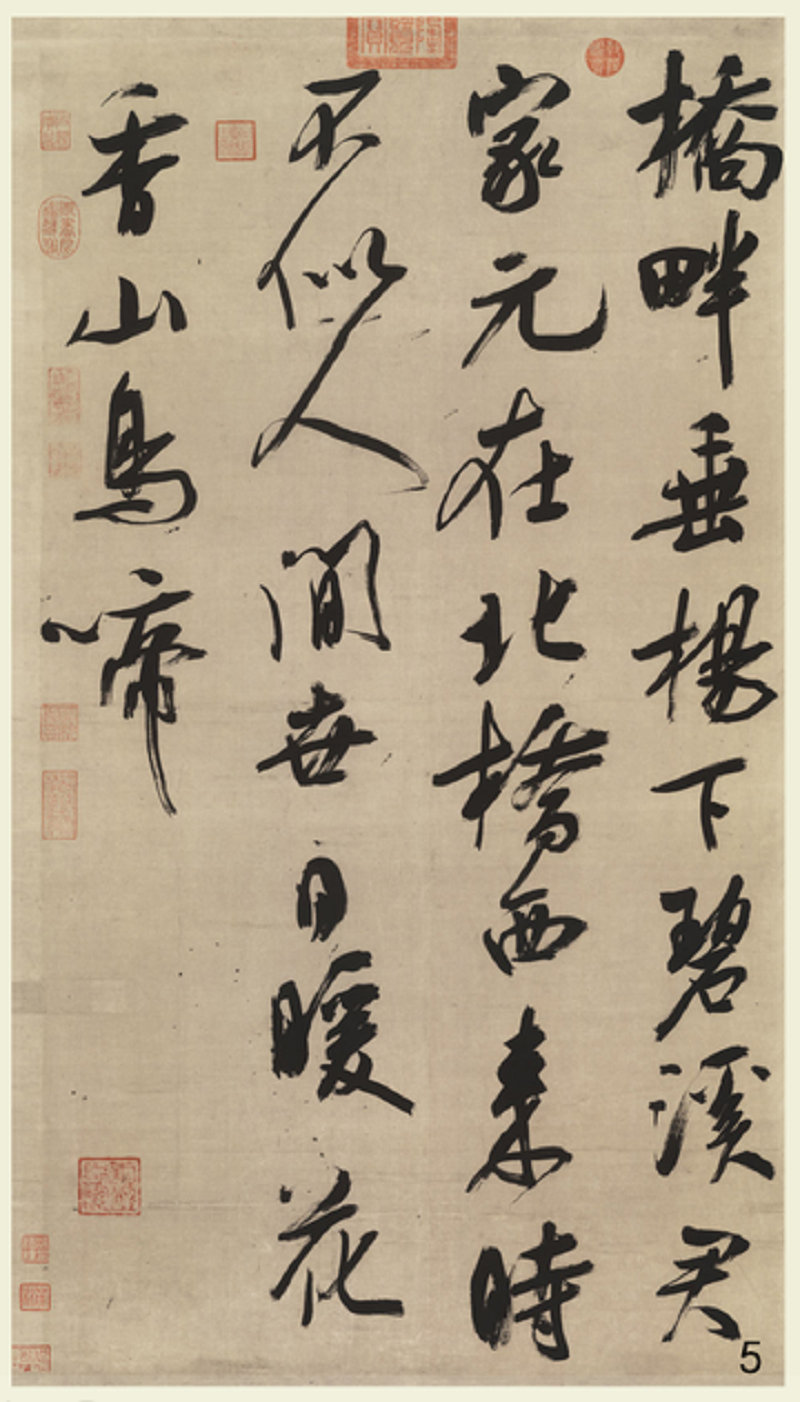 橋畔垂楊下碧溪君
家元在北橋西來時
不似人間世日暖花
香山鳥啼
5